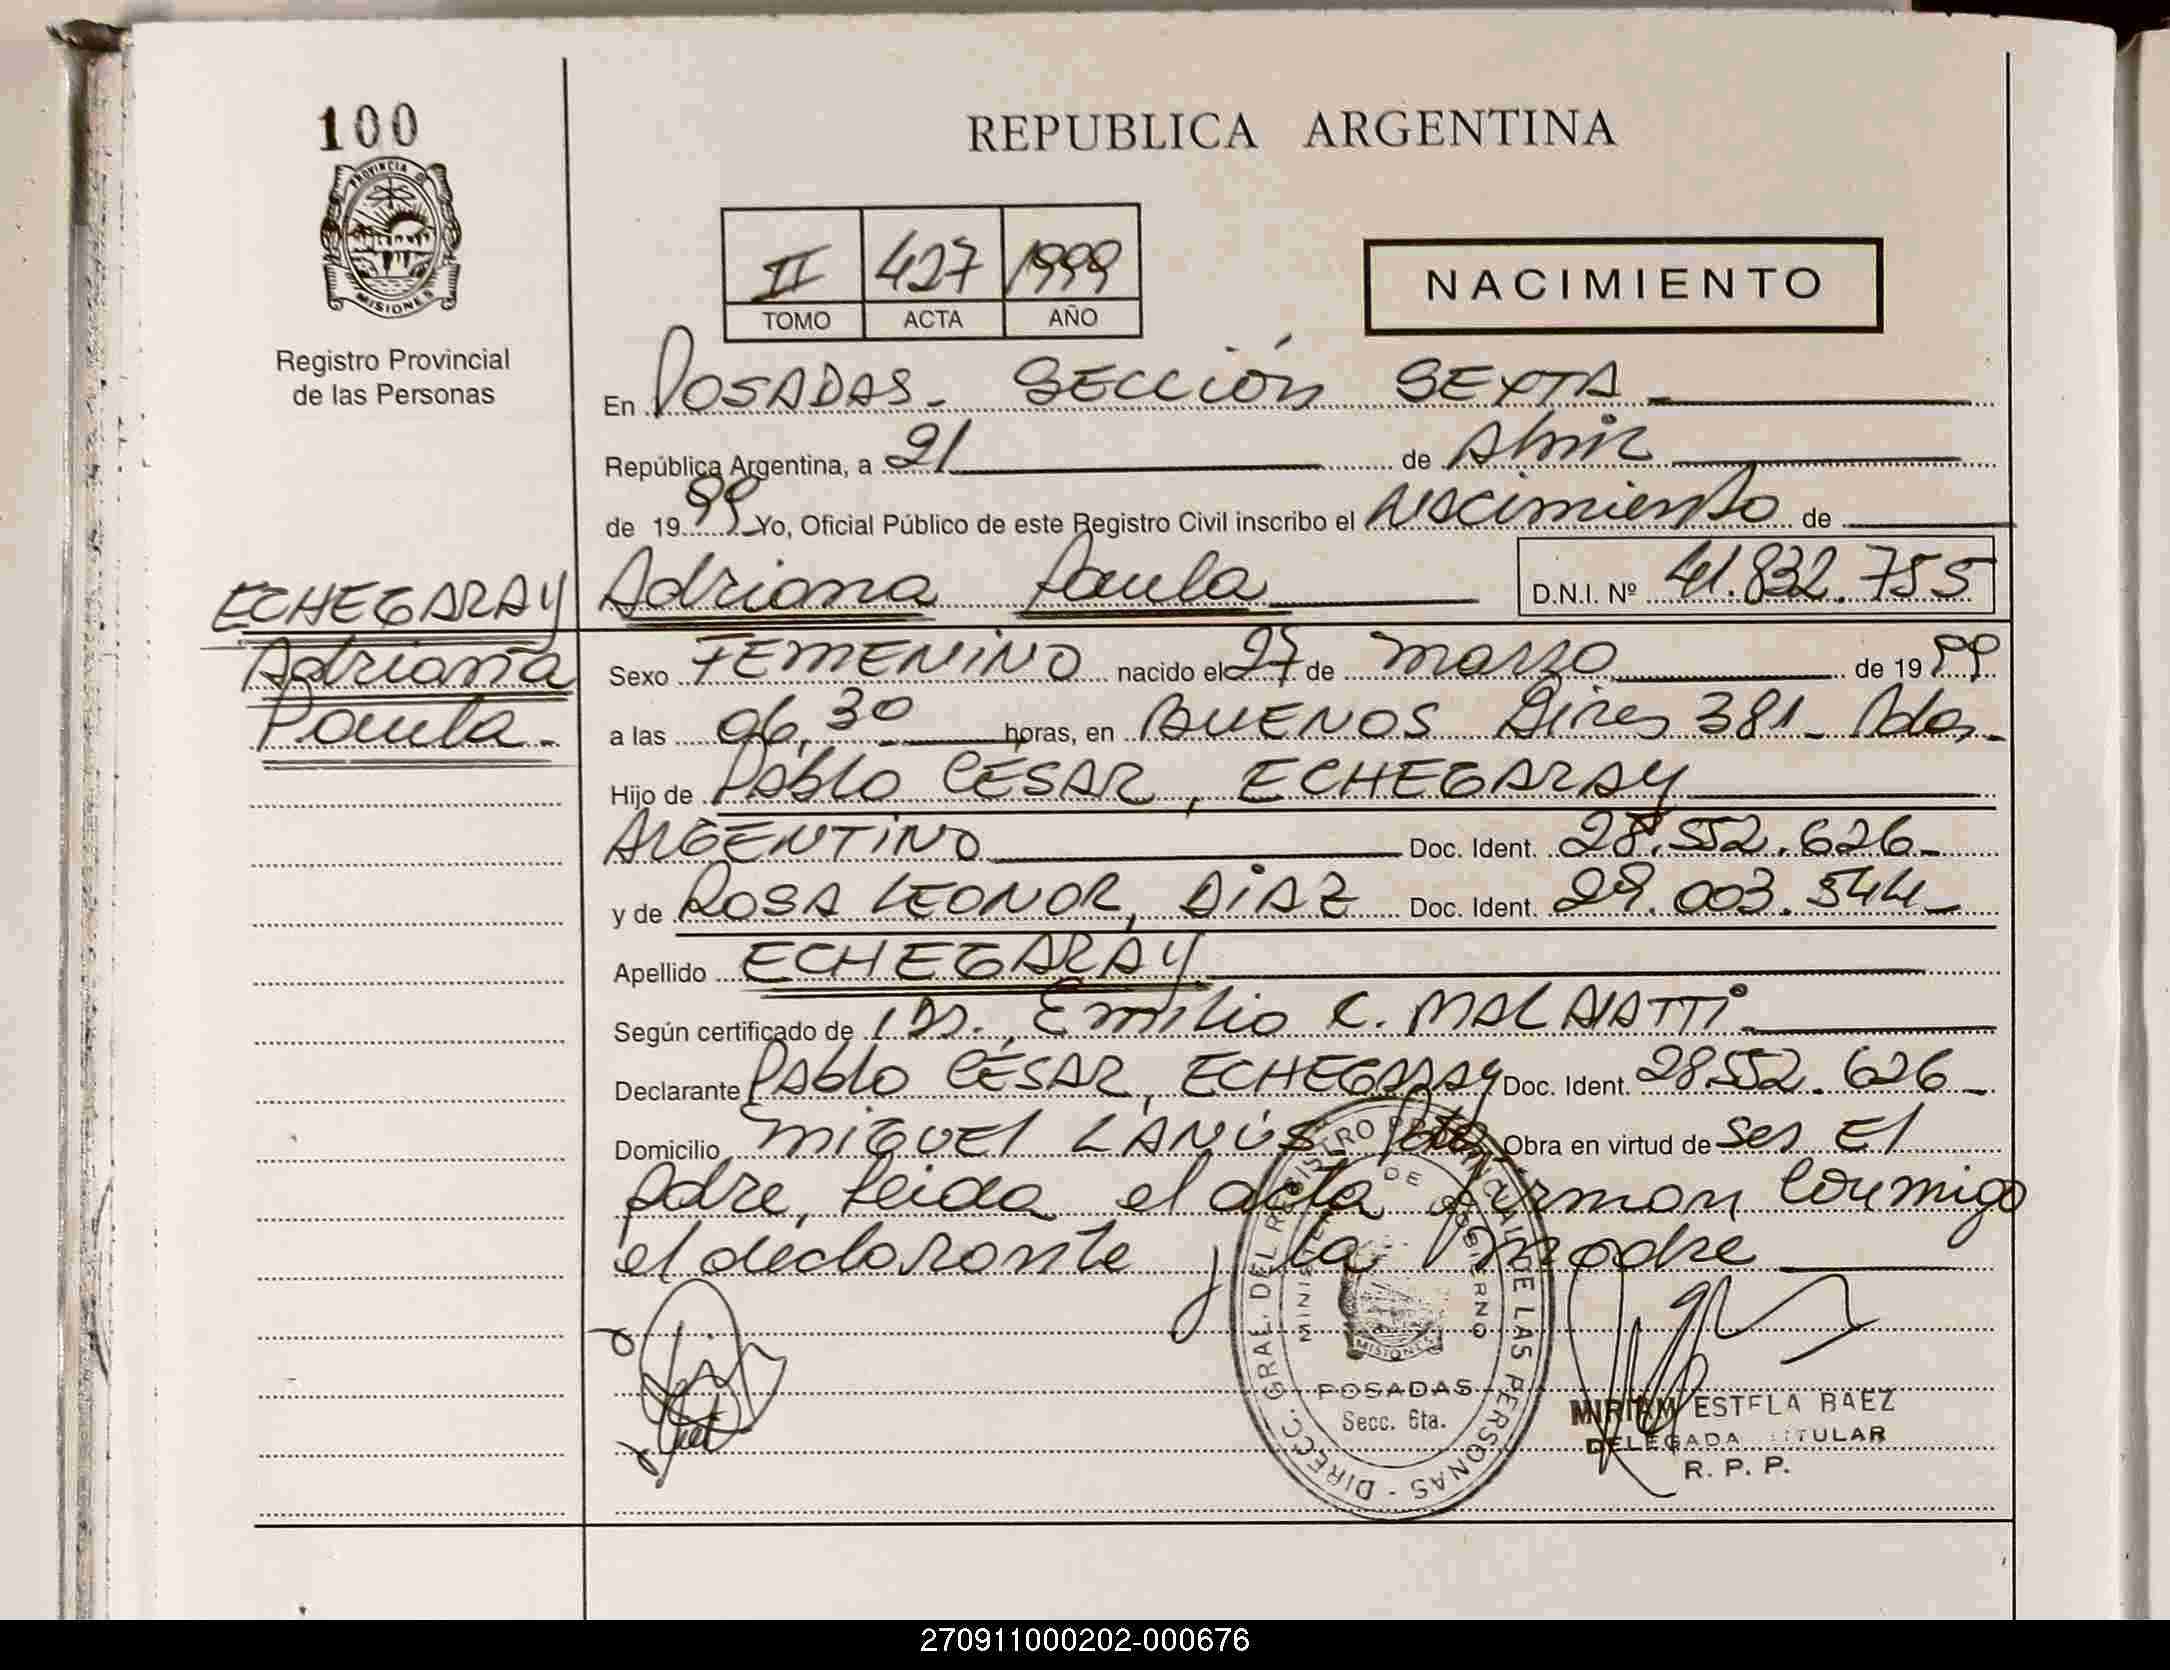 100
REPUBLICA ARGENTINA
PROVINCIA DE
MISIONES
Registro Provincial
de las Personas
II 427 1999
TOMO ACTA AÑO
NACIMIENTO
En POSADAS - SECCIÓN SEXTA
República Argentina, a 21 de Abril
de 1999 Yo, Oficial Público de este Registro Civil inscribo el Nacimiento de
ECHEGARAY
Adriana
Paula.-
Adriana Paula D.N.I. Nº 41.832.755
Sexo FEMENINO nacido el 27 de marzo de 1999
a las 06,30 horas, en BUENOS Aires 381 - Pdas.-
Hijo de Pablo CÉSAR, ECHEGARAY
ARGENTINO Doc. Ident. 28.552.626-
y de ROSA LEONOR, DIAZ Doc. Ident. 29.003.544-
Apellido ECHEGARAY
Según certificado de Dr. Emilio C. MALNATTI
Declarante Pablo CÉSAR, ECHEGARAY Doc. Ident. 28.552.626-
Domicilio MIGUEL LANÚS Obra en virtud de ser El
Padre, leida el acta firman conmigo
el declarante y la madre
DIRECC. GRAL. DEL REGISTRO PROVINCIAL DE LAS PERSONAS -
MINISTERIO DE GOBIERNO
MISIONES
POSADAS
Secc. 6ta.
MIRIAM ESTELA BAEZ
DELEGADA TITULAR
R. P. P.
270911000202-000676